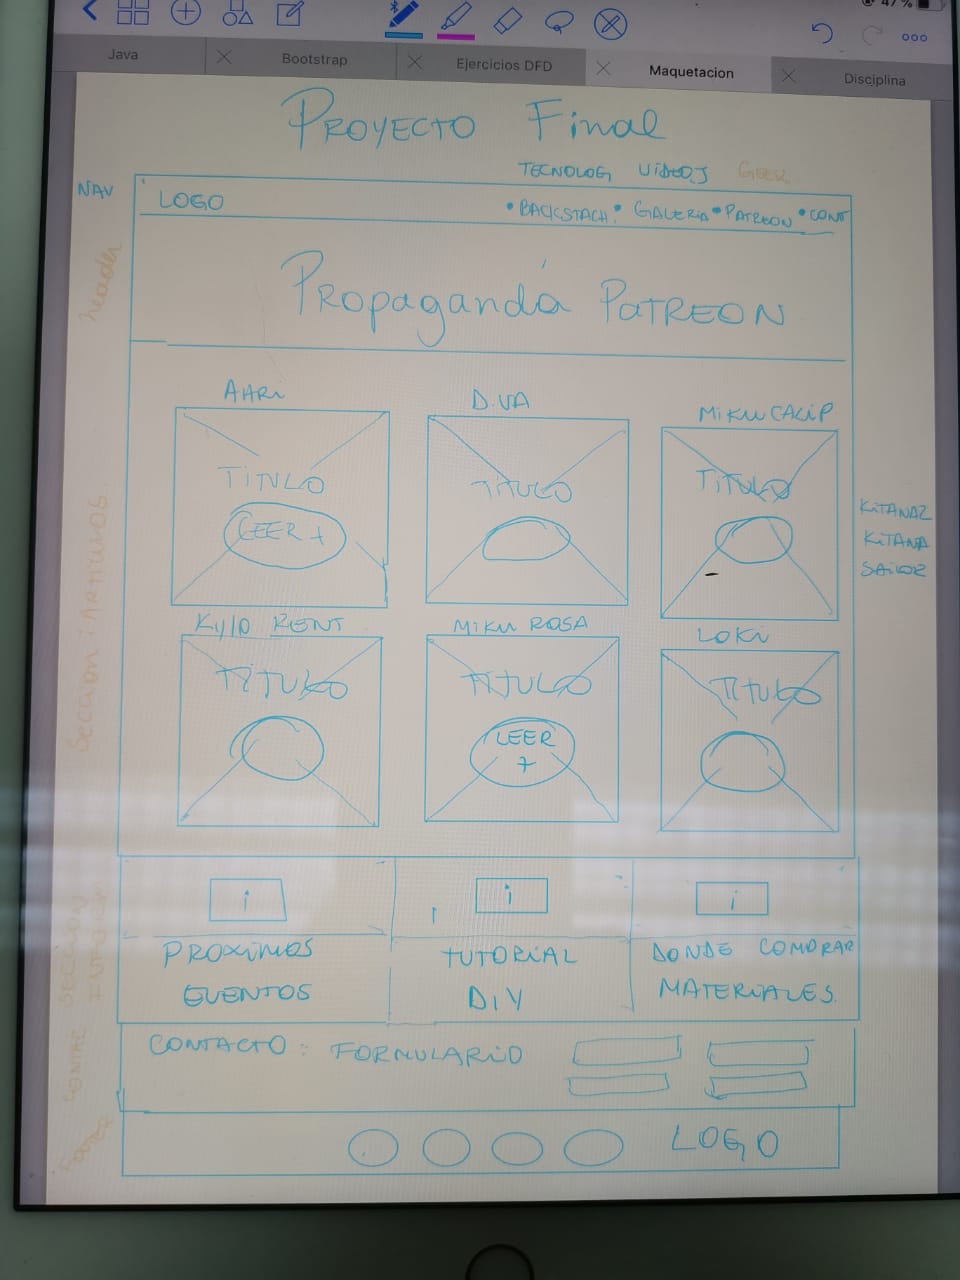 47 %
Java
Bootstrap
Ejercicios DFD
Maquetacion
Disciplina
PROYECTO Final
TECNOLOG VIDEOJ GEEK
NAV
LOGO
• BACKSTACH • GALERIA • PATREON • CONT
header
Propaganda PATREON
AHRi
D.VA
MIKU CALIP
TITULO
TITULO
TITULO
LEER +
KITANA2
KITANA
SAILOR
KYLO RENT
MIKU ROSA
LOKI
TITULO
TITULO
TITULO
LEER
+
i
i
i
PROXIMOS
EVENTOS
TUTORIAL
DIY
DONDE COMPRAR
MATERIALES
SECCION
CONTACTO : FORMULARIO
FOOTER
LOGO